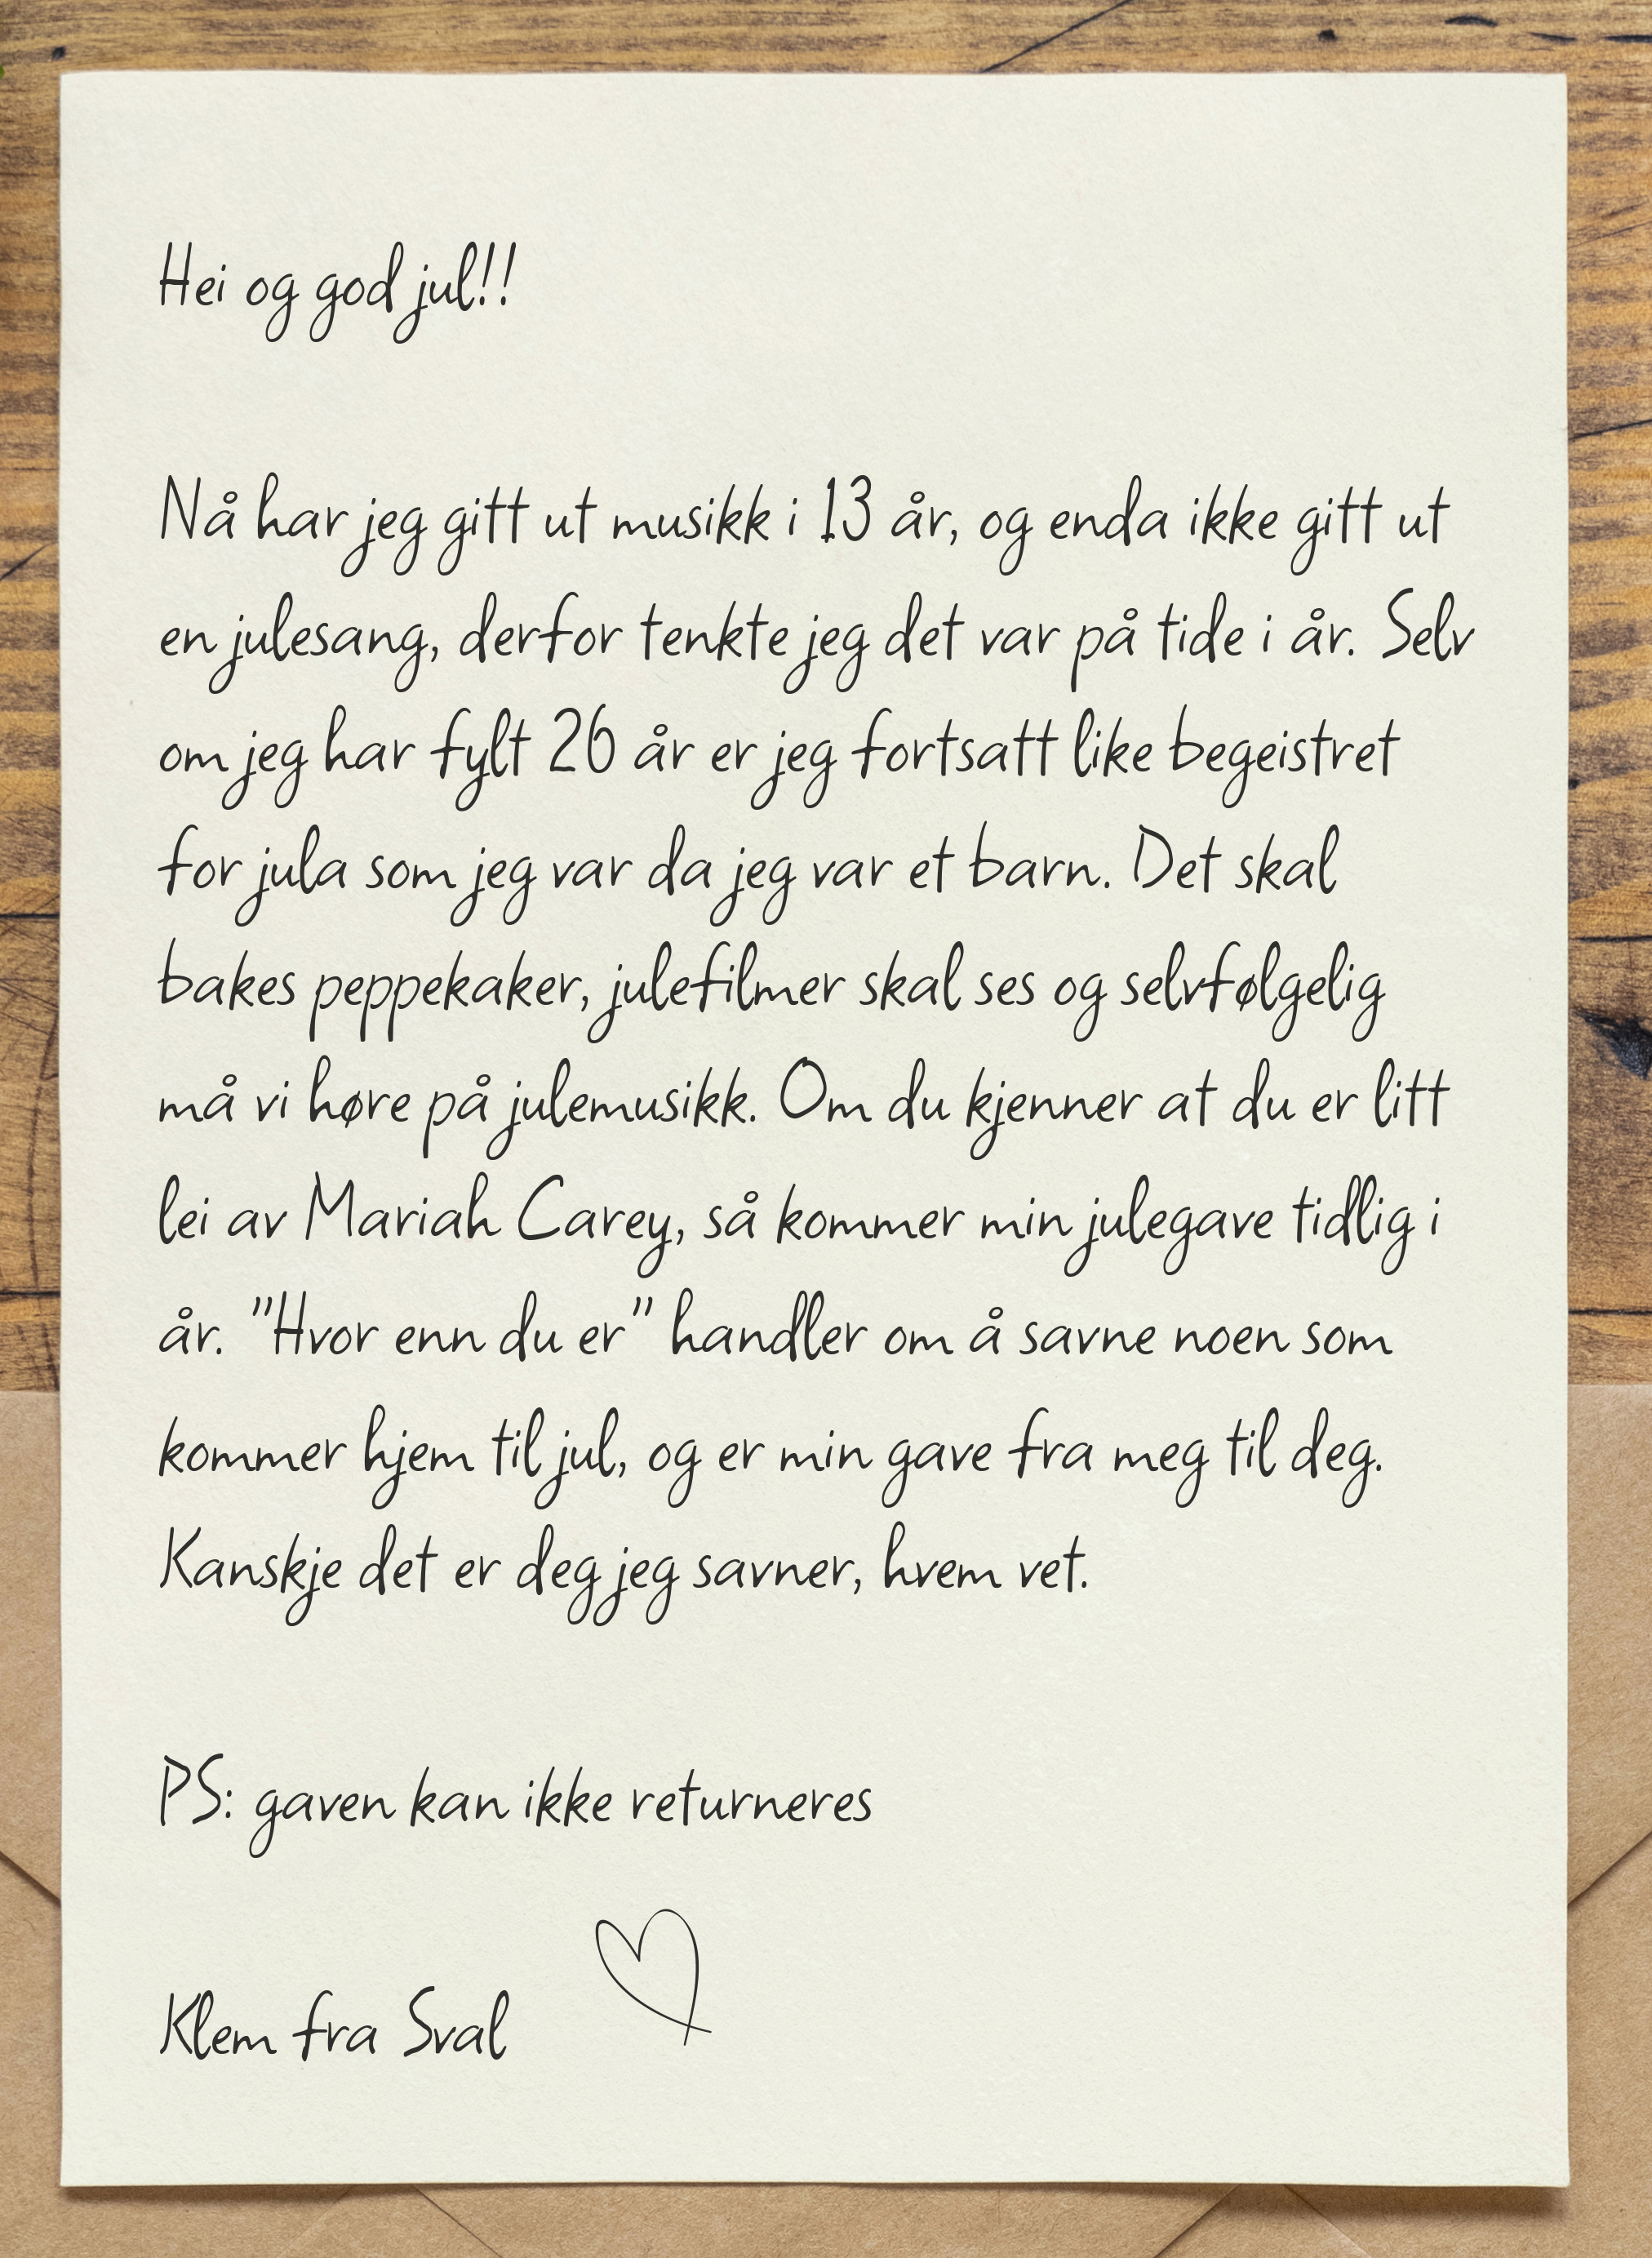 Hei og god jul!!
Nå har jeg gitt ut musikk i 13 år, og enda ikke gitt ut
en julesang, derfor tenkte jeg det var på tide i år. Selv
om jeg har fylt 26 år er jeg fortsatt like begeistret
for jula som jeg var da jeg var et barn. Det skal
bakes peppekaker, julefilmer skal ses og selvfølgelig
må vi høre på julemusikk. Om du kjenner at du er litt
lei av Mariah Carey, så kommer min julegave tidlig i
år. "Hvor enn du er" handler om å savne noen som
kommer hjem til jul, og er min gave fra meg til deg.
Kanskje det er deg jeg savner, hvem vet.
PS: gaven kan ikke returneres
Klem fra Sval